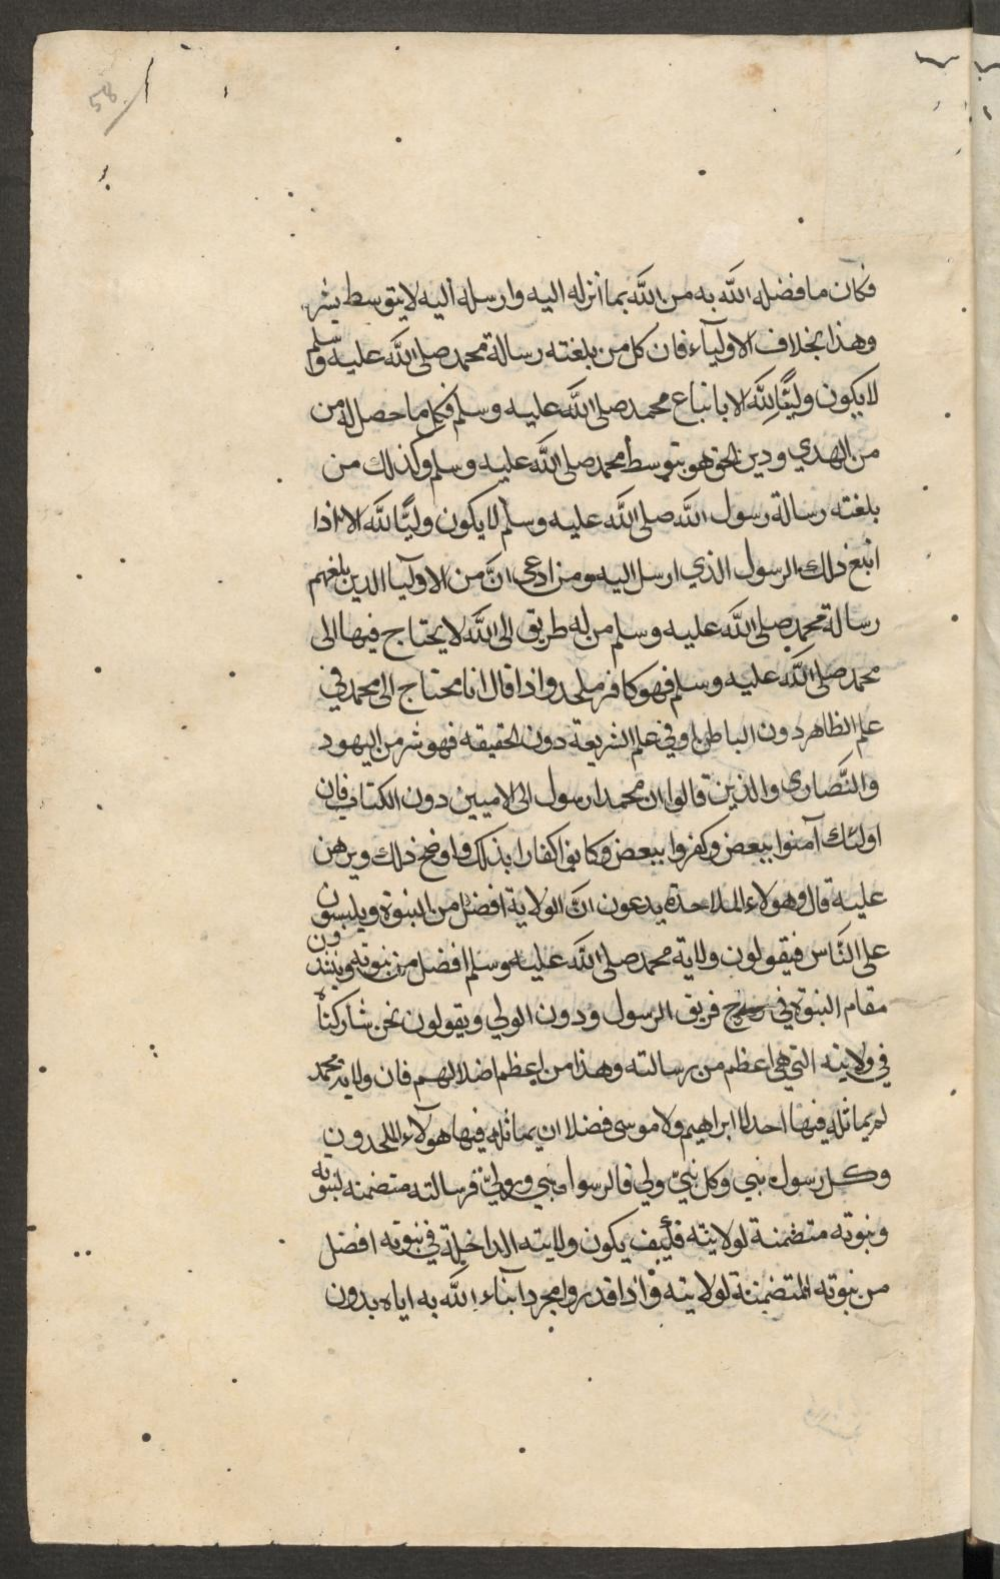 58
فكان ما فضله الله به من الله بما انزله اليه وارسله اليه لا بتوسط بشر
وهذا بخلاف الاولياء فان كل من بلغته رسالة محمد صلى الله عليه وسلم
لا يكون وليًّا لله الا باتباع محمد صلى الله عليه وسلم فكل ما حصل له من
من الهدي ودين الحق هو بتوسط محمد صلى الله عليه وسلم وكذلك من
بلغته رسالة رسول الله صلى الله عليه وسلم لا يكون وليًّا لله الا اذا
اتبع ذلك الرسول الذي ارسل اليه ومن ادعى انَّ من الاوليآ الذين بلغهم
رسالة محمد صلى الله عليه وسلم من له طريق الى الله لا يحتاج فيها الى
محمد صلى الله عليه وسلم فهو كافر ملحد واذا قال انا محتاج الى محمد في
علم الظاهر دون الباطن او في علم الشريعة دون الحقيقه فهو شر من اليهود
والنَّصارى والذين قالوا ان محمدا رسول الى الاميين دون الكتاب فان
اولئك آمنوا ببعض وكفروا ببعض وكانوا كفارا بذلك واوضح ذلك وبرهن
عليه قال وهولاء الملاحدة يدعون انَّ الولاية افضل من النبوة ويلبسون
على النَّاس فيقولون ولاية محمد صلى الله عليه وسلم افضل من نبوته وينشدون
مقام النبوة في فريق الرسول ودون الولي ويقولون نحن شاركناه
في ولايته التي هي اعظم من رسالته وهذا من اعظم اضلالهم فان ولاية محمد
لم يماثله فيها احد لا ابراهيم ولا موسى فضلا ان يماثله فيها هولآء الملحدون
وكل رسول نبي وكل نبيّ ولي فالرسول نبي وليّ فرسالته متضمنه لنبوته
ونبوته متضمنة لولايته فكيف يكون ولايته الداخلة في نبوته افضل
من نبوته المتضمنة لولايته واذا قدروا مجرد انباء الله به اياه بدون